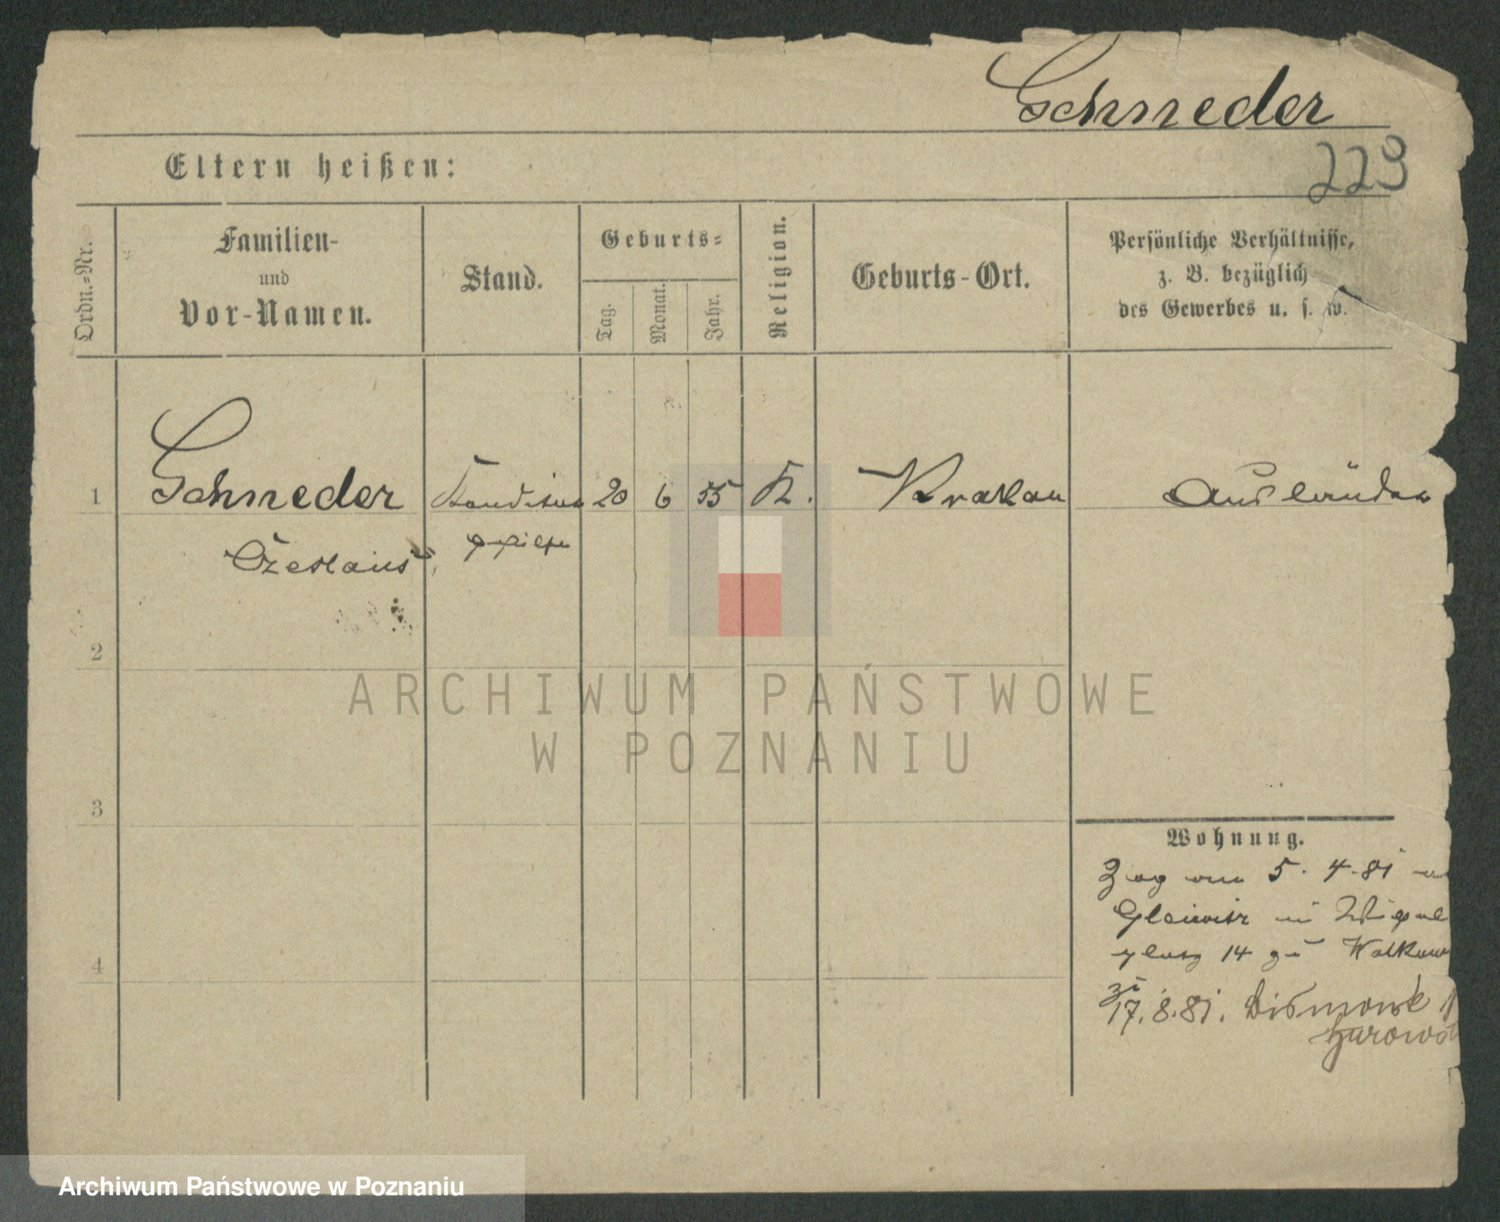 Schneder
229
Eltern heißen:
Ordn.-Nr.
Familien-
und
Vor-Namen.
Stand.
Geburts-
Tag.
Monat.
Jahr.
Religion.
Geburts-Ort.
Persönliche Verhältnisse,
z. B. bezüglich
des Gewerbes u. s. w.
1
Schneder
Czeslaus
20
6
55
K.
Krakau
Ausländer
2
3
4
Wohnung.
Zog von 5. 4. 81
Gleiwitz in
platz 14 zu
17. 8. 81. Bismark
ARCHIWUM PAŃSTWOWE
W POZNANIU
Archiwum Państwowe w Poznaniu